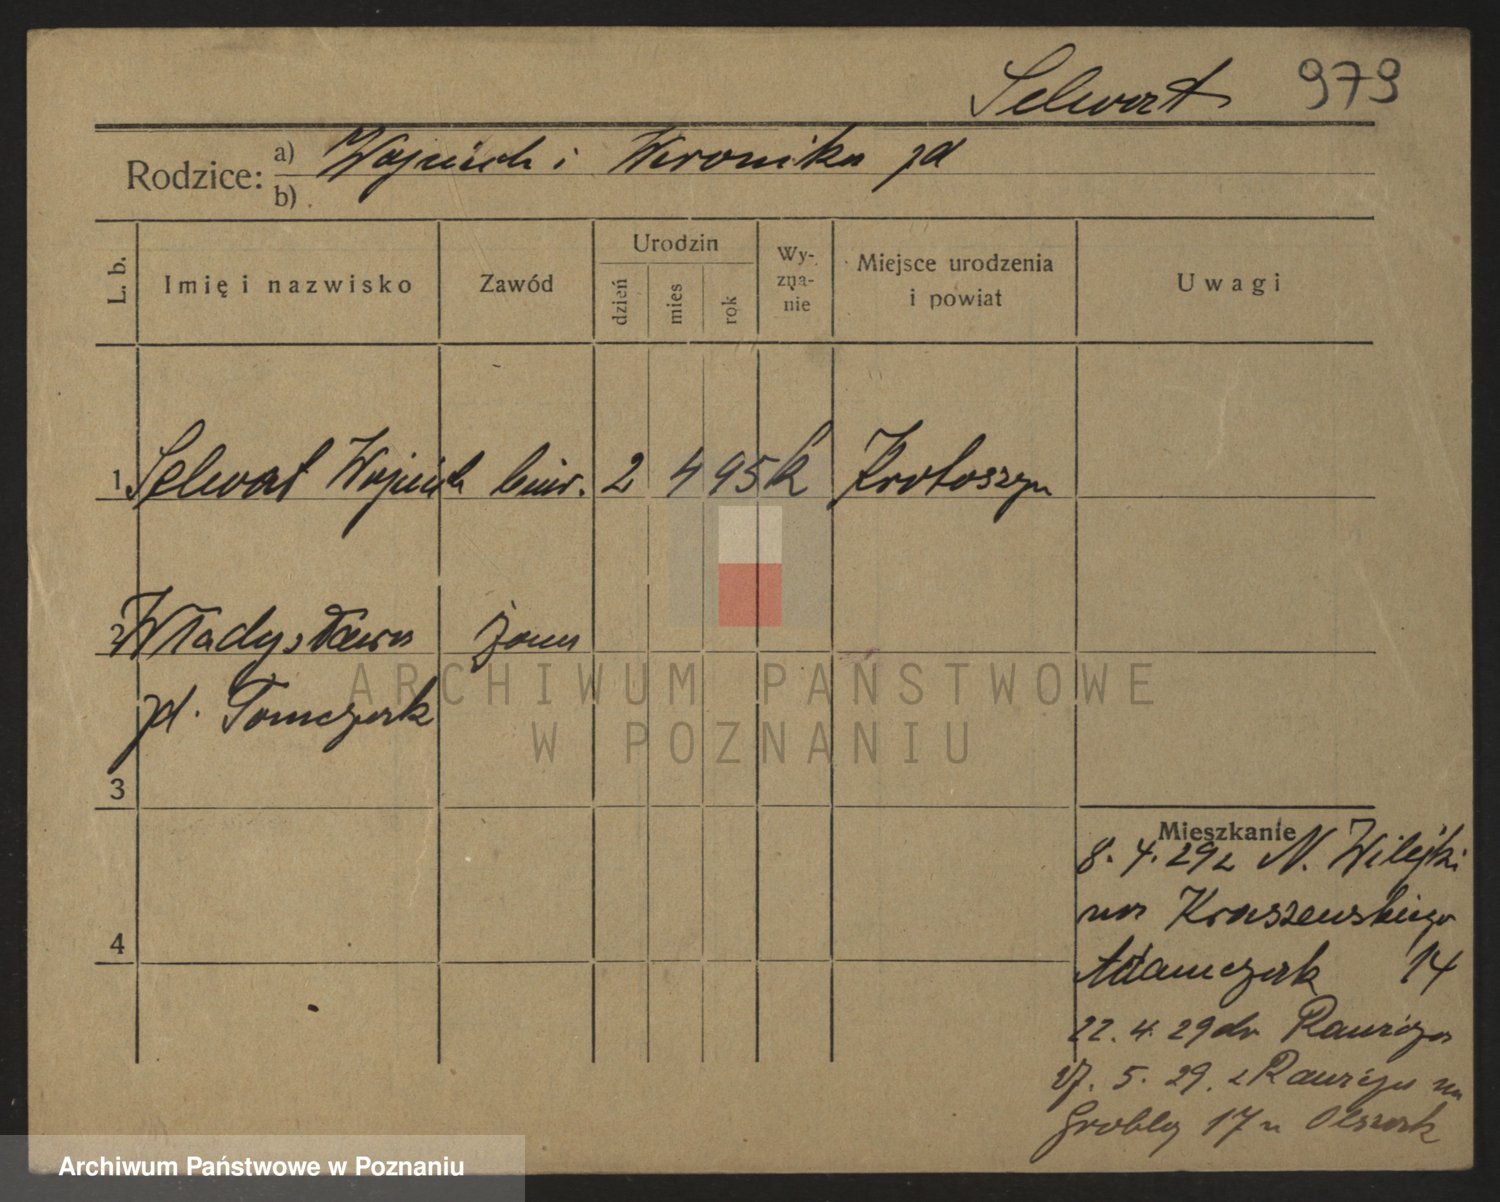 Selwat 979
Rodzice: a) Wojciech i Weronika zd
b)
L. b. Imię i nazwisko Zawód Urodzin dzień mies rok Wy-zna-nie Miejsce urodzenia i powiat Uwagi
1 Selwat Wojciech biur. 2 4 95 k Krotoszyn
2 Władysława żona
zd. Tomczak
3
Mieszkanie
8. 4. 29 z N. Wilejki
na Kraszewskiego
4
Adamczak 14
22. 4. 29 do Rawicza
27. 5. 29. z Rawicza na
Grobla 17 u Olszak
ARCHIWUM PAŃSTWOWE
W POZNANIU
Archiwum Państwowe w Poznaniu